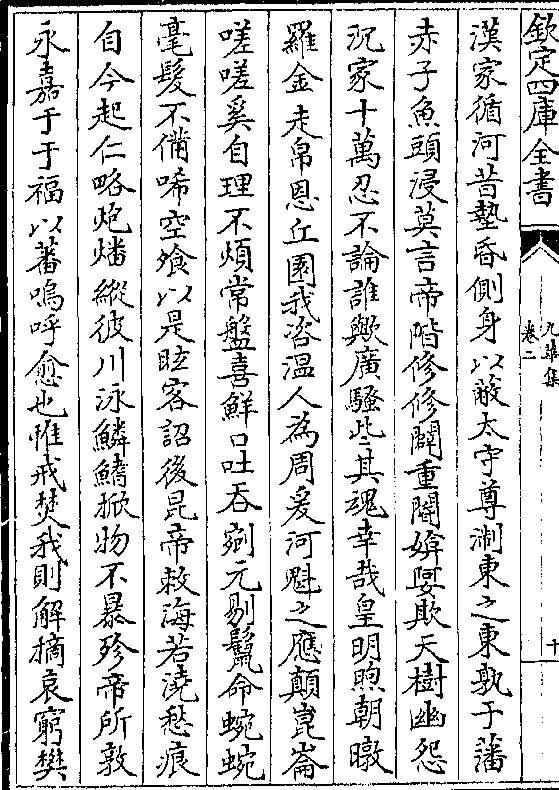 欽定四庫全書
九華集
卷二
十
漢家循河昔墊昏側身以蔽太守尊淛東之東孰于藩
赤子魚頭浸莫言帝階修修闢重閽媕娿欺天樹幽怨
沉家十萬忍不論誰歟廣騷些其魂幸哉皇明煦朝暾
羅金走帛恩丘園我咨溫人為周爰河魁之應顛崑崙
嗟嗟奚自理不煩常盤喜鮮口吐吞剜元剔鬣命蜿蜿
毫髮不備唏空飧以是眩客詔後昆帝敕海若澆愁痕
自今起仁略炮燔縱彼川泳鱗鰭掀物不暴殄帝所敦
永嘉于于福以蕃嗚呼愈也惟戒焚我則解摘哀窮樊